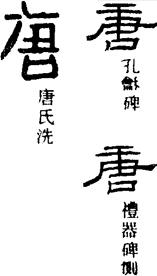 唐
孔龢碑
唐
禮器碑側
唐
唐氏洗